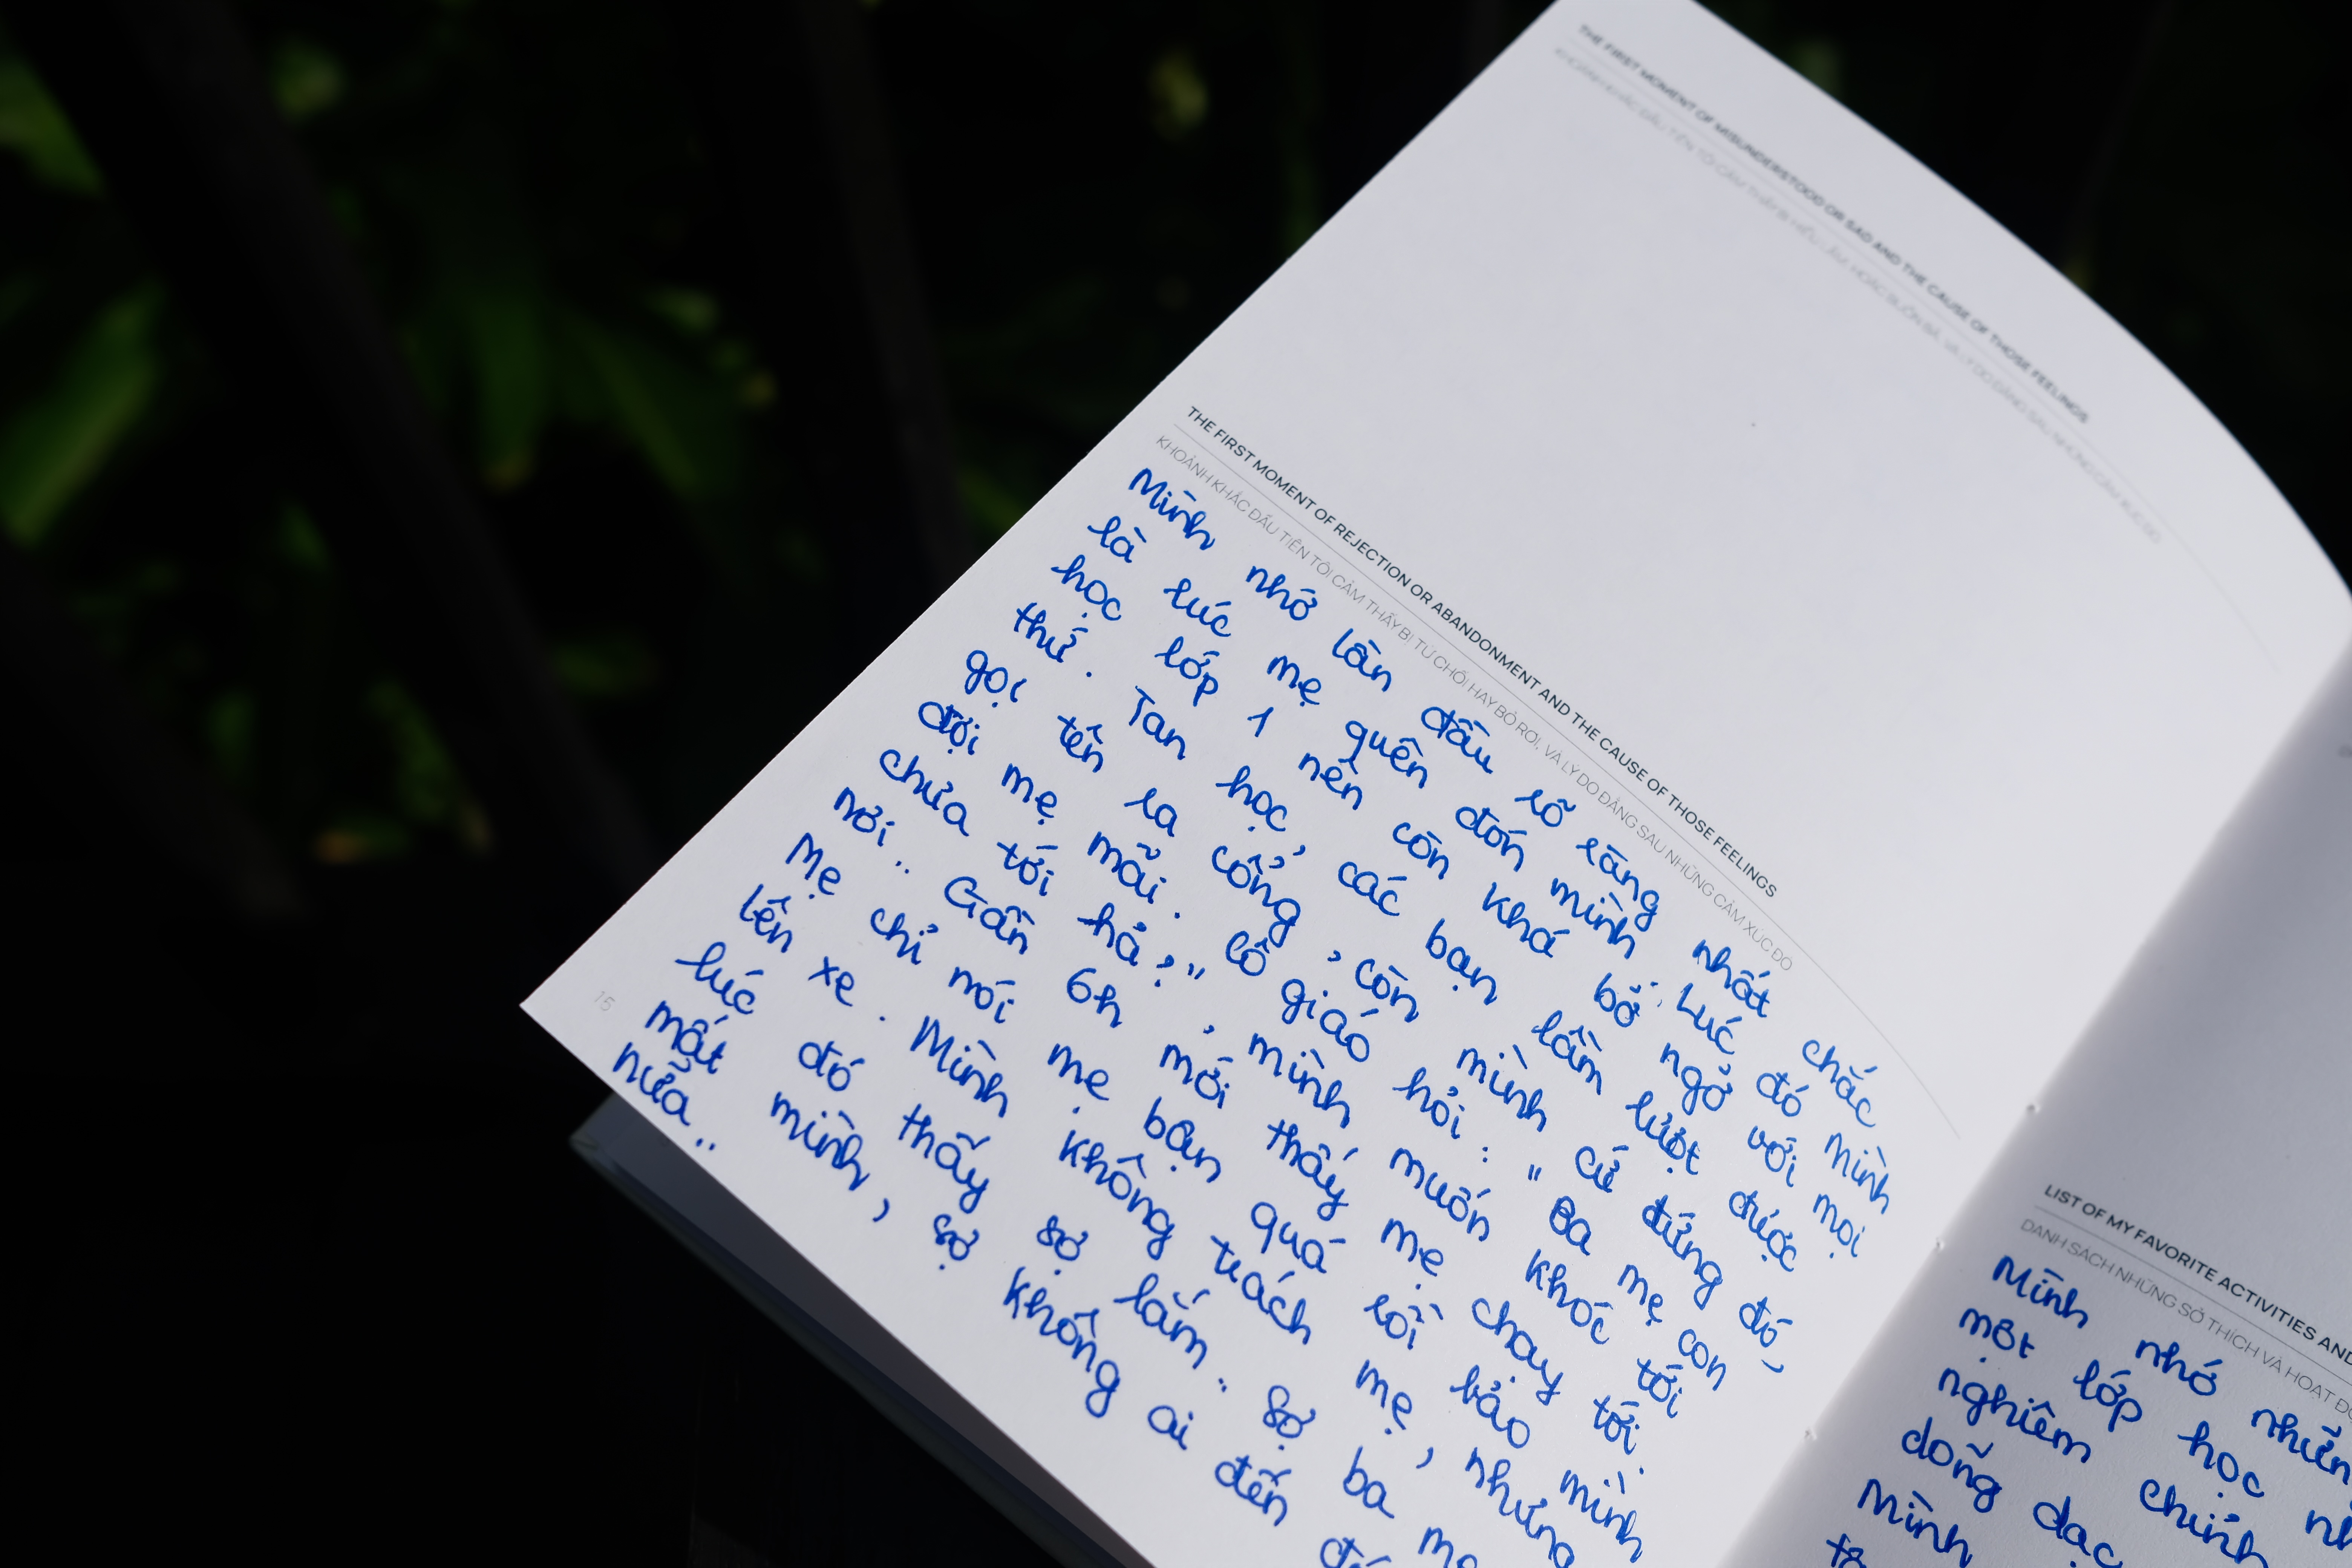 THE FIRST MOMENT OF MISUNDERSTOOD OR SAD AND THE CAUSE OF THOSE FEELINGS
KHOẢNH KHẮC ĐẦU TIÊN TÔI CẢM THẤY BỊ HIỂU LẦM, HOẶC BUỒN BÃ, VÀ LÝ DO ĐẰNG SAU NHỮNG CẢM XÚC ĐÓ
THE FIRST MOMENT OF REJECTION OR ABANDONMENT AND THE CAUSE OF THOSE FEELINGS
KHOẢNH KHẮC ĐẦU TIÊN TÔI CẢM THẤY BỊ TỪ CHỐI HAY BỎ RƠI, VÀ LÝ DO ĐẰNG SAU NHỮNG CẢM XÚC ĐÓ
Mình nhớ lần đầu rõ ràng nhất chắc
là lúc mẹ quên đón mình. Lúc đó mình
học lớp 1 nên còn khá bỡ ngỡ với mọi
thứ. Tan học, các bạn lần lượt được
gọi tên ra cổng, còn mình cứ đứng đó
đợi mẹ mãi. Cô giáo hỏi: "Ba mẹ con
chưa tới hả?", mình muốn khóc tới
nơi.. Gần 6h mới thấy mẹ chạy tới.
Mẹ chỉ nói mẹ bận quá rồi bảo mình
lên xe. Mình không trách mẹ, nhưng
lúc đó thấy sợ lắm.. Sợ ba
mất mình, sợ không ai đến
nữa..
15
LIST OF MY FAVORITE ACTIVITIES AN
DANH SÁCH NHỮNG SỞ THÍCH VÀ HOẠT
Mình nhớ
một lớp học
nghiêm chỉnh
dõng dạc
Mình